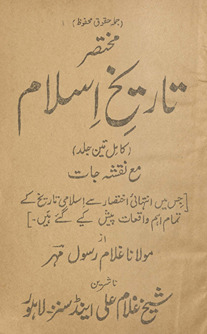 (جملہ حقوق محفوظ)
مختصر
تاریخِ اسلام
(کامل تین جلد)
مع نقشہ جات
[جس میں انتہائی اختصار سے اسلامی تاریخ کے
تمام اہم واقعات پیش کیے گئے ہیں۔]
از
مولانا غلام رسول مہر
ناشرین
شیخ غلام علی اینڈ سنز۔ لاہور